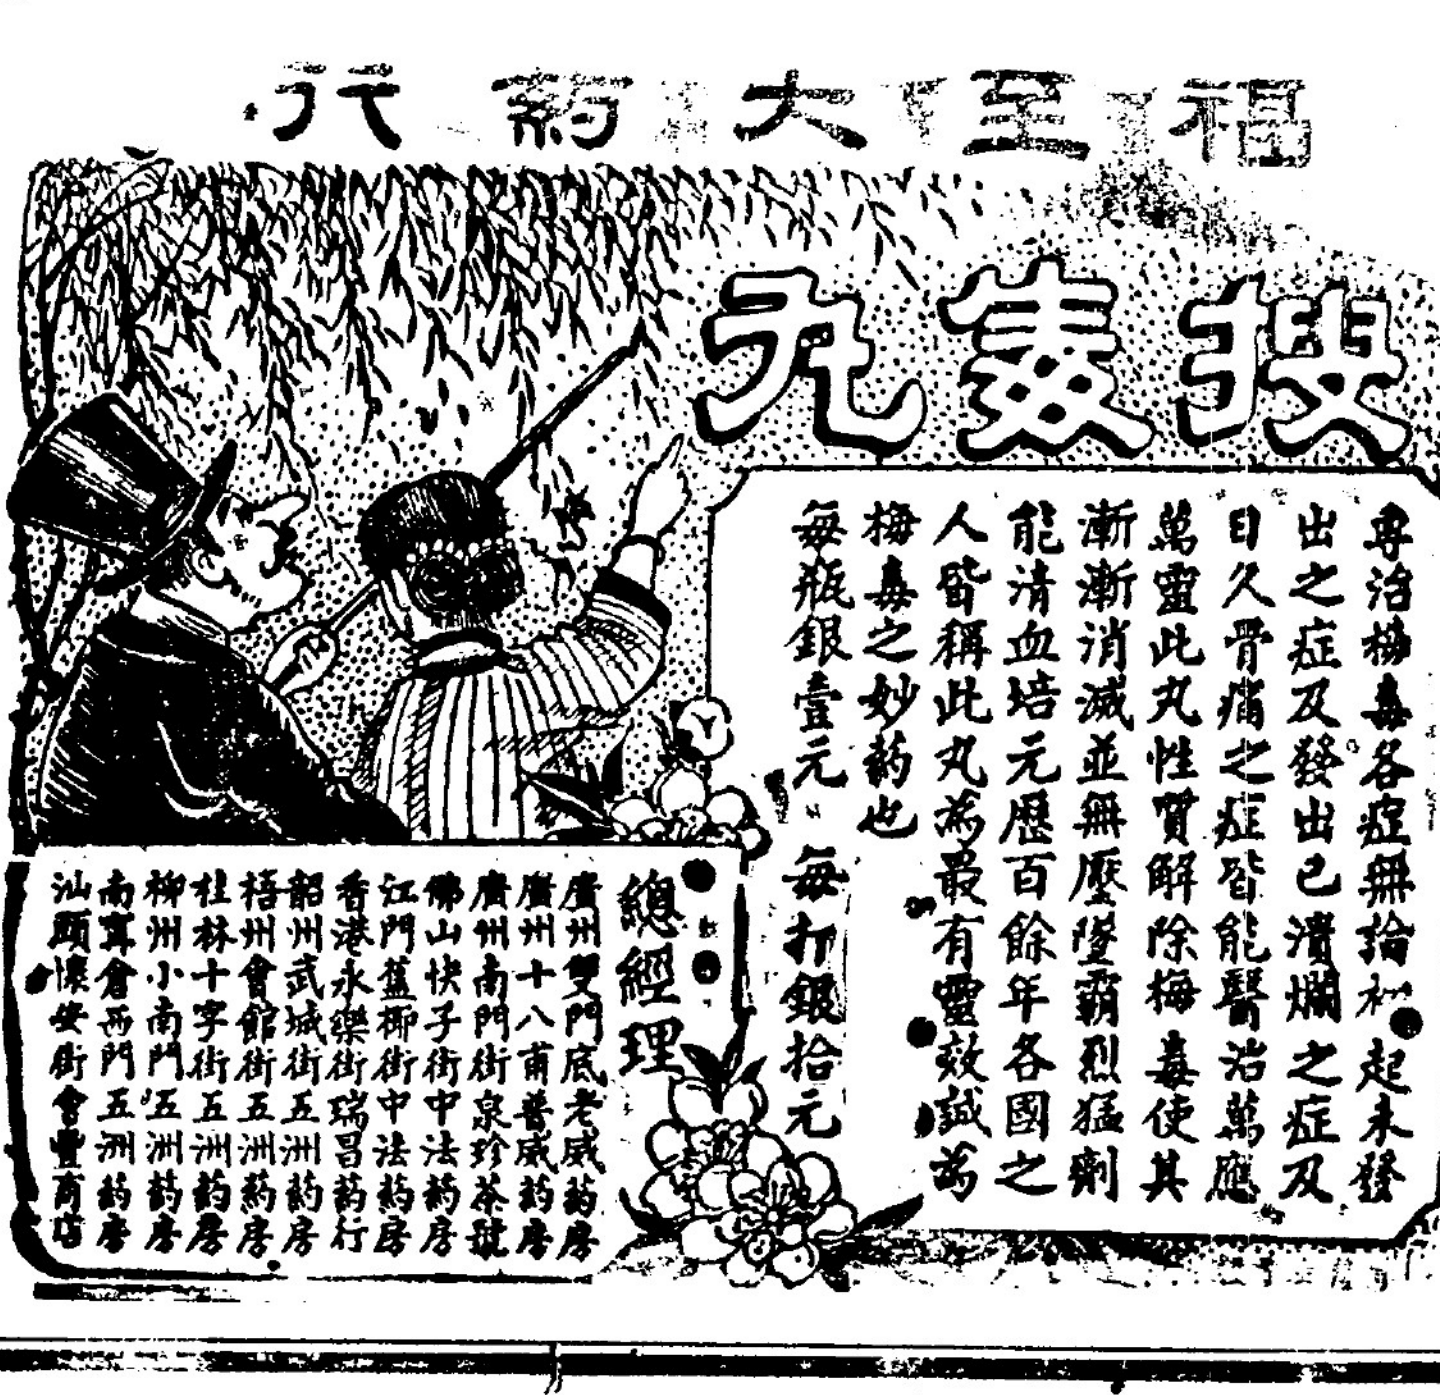 福至大药行
搜毒丸
專治梅毒各症無論初起未發
出之症及發出已潰爛之症及
日久骨痛之症皆能醫治萬應
萬靈此丸性質解除梅毒使其
漸漸消滅並無壓墜霸烈猛劑
能清血培元歷百餘年各國之
人皆稱此丸為最有靈效誠為
梅毒之妙药也
每瓶銀壹元 每打銀拾元
總經理
廣州雙門底老威药房
廣州十八甫普威药房
廣州南門街泉珍茶號
佛山快子街中法药房
江門舊椰街中法药房
香港永樂街瑞昌药行
韶州武城街五洲药房
梧州會館街五洲药房
桂林十字街五洲药房
柳州小南門五洲药房
南寧倉西門五洲药房
汕頭懷安街會豐商店